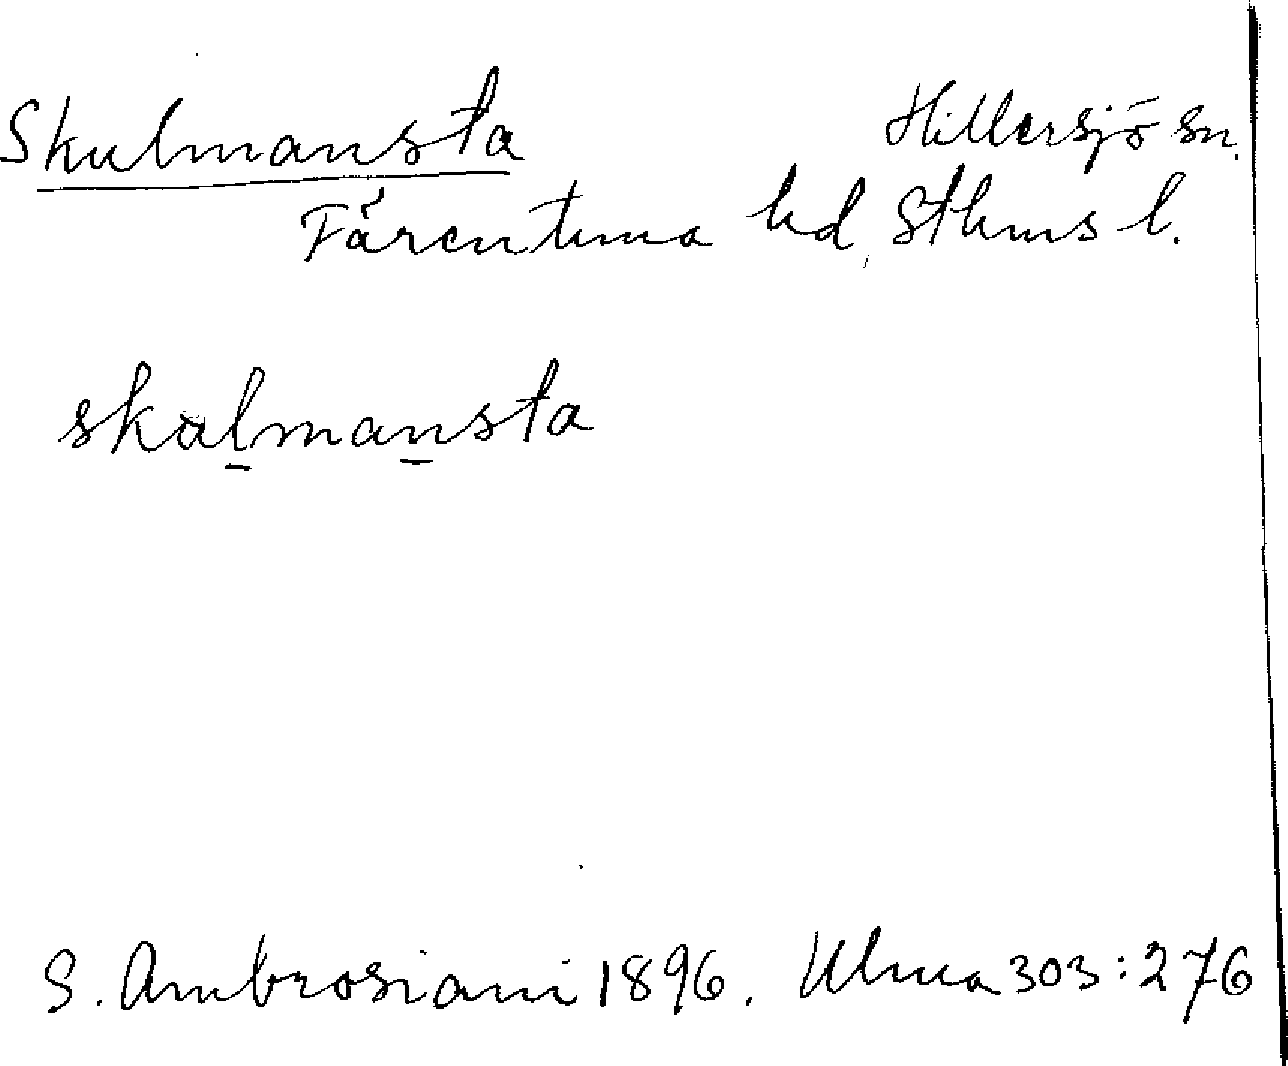 Skulmansta Hillersjö sn.
Färentuna hd, Sthms l.
skalmansta
S. Ambrosiani 1896. Ulma 303:276